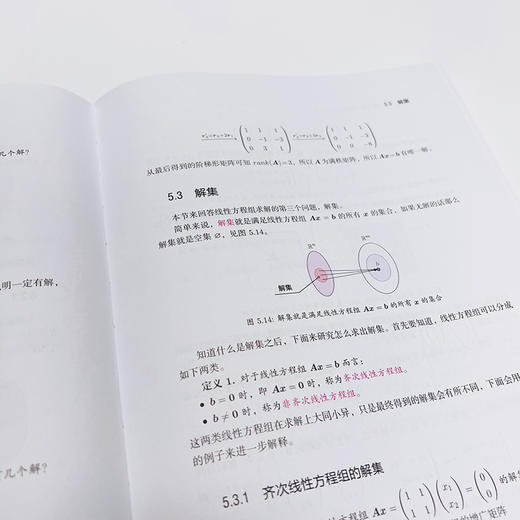 5.3 解集
几个解?
从最后得到的阶梯形矩阵可知 rank(A)=3，所以 A 为满秩矩阵，所以 Ax=b 有唯一解。
5.3 解集
本节来回答线性方程组求解的第三个问题，解集。
简单来说，解集就是满足线性方程组 Ax = b 的所有 x 的集合，如果无解的话那么
解集就是空集 ∅，见图 5.14。
明一定有解，
解集
b
图 5.14: 解集就是满足线性方程组 Ax = b 的所有 x 的集合
知道什么是解集之后，下面来研究怎么求出解集。首先要知道，线性方程组可以分成
如下两类。
定义 1. 对于线性方程组 Ax = b 而言：
• b = 0 时，即 Ax = 0 时，称为齐次线性方程组。
• b ≠ 0 时，称为非齐次线性方程组。
这两类线性方程组在求解上大同小异，只是最终得到的解集会有所不同，下面会用
的例子来进一步解释。
几个解?
5.3.1 齐次线性方程组的解集
程组 Ax = (1 1; 1 1)(x₁; x₂) = (0; 0) 的解集
的增广矩阵